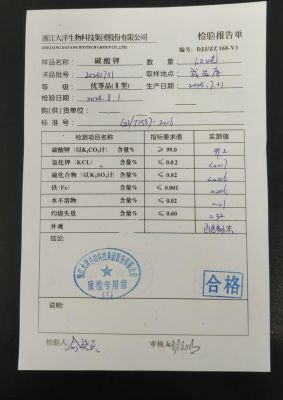 浙江大洋生物科技集团股份有限公司
ZHEJIANG DAYANG BIOTECH GROUP CO.,LTD.
检验报告单
编号: DJJ/ZZ 168-V3
样品名称 碳酸钾 数 量
样品批号 20250731 取样地点 成品库
等 级 优等品(Ⅱ型) 生产日期 2025.7.31
检验日期 2025.8.1
购(供)货单位
标 准 号
检测项目名称 指标要求值 实测值
碳酸钾(以K₂CO₃计) 含量% ≥ 99.0 99.2
氯化钾(KCL) 含量% ≤ 0.02
硫化合物(以K₂SO₄计) 含量% ≤ 0.02
铁(Fe) 含量% ≤ 0.001
水不溶物 含量% ≤ 0.02 0.01
灼烧失量 含量% ≤ 0.60 0.32
外观
结论:
浙江大洋生物科技集团股份有限公司
质检专用章
(1)
合格
说明:
检验人: 审核人: